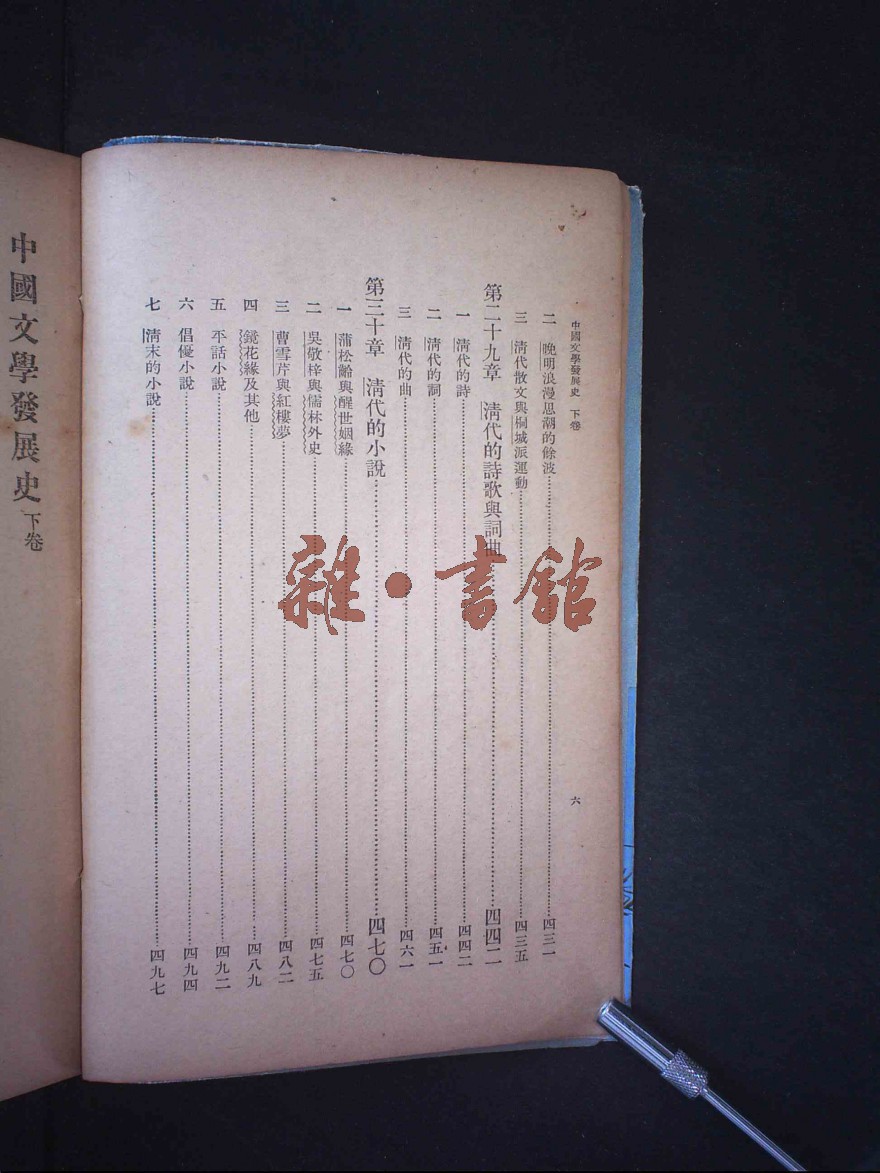 中國文學發展史 下卷
六
二 晚明浪漫思潮的餘波……四三一
三 清代散文與桐城派運動……四三五
第二十九章 清代的詩歌與詞曲……四四二
一 清代的詩……四四二
二 清代的詞……四五一
三 清代的曲……四六一
第三十章 清代的小說……四七〇
一 蒲松齡與醒世姻緣……四七〇
二 吳敬梓與儒林外史……四七五
三 曹雪芹與紅樓夢……四八二
四 鏡花緣及其他……四八九
五 平話小說……四九二
六 倡優小說……四九四
七 清末的小說……四九七
中國文學發展史 下卷
雜·書館